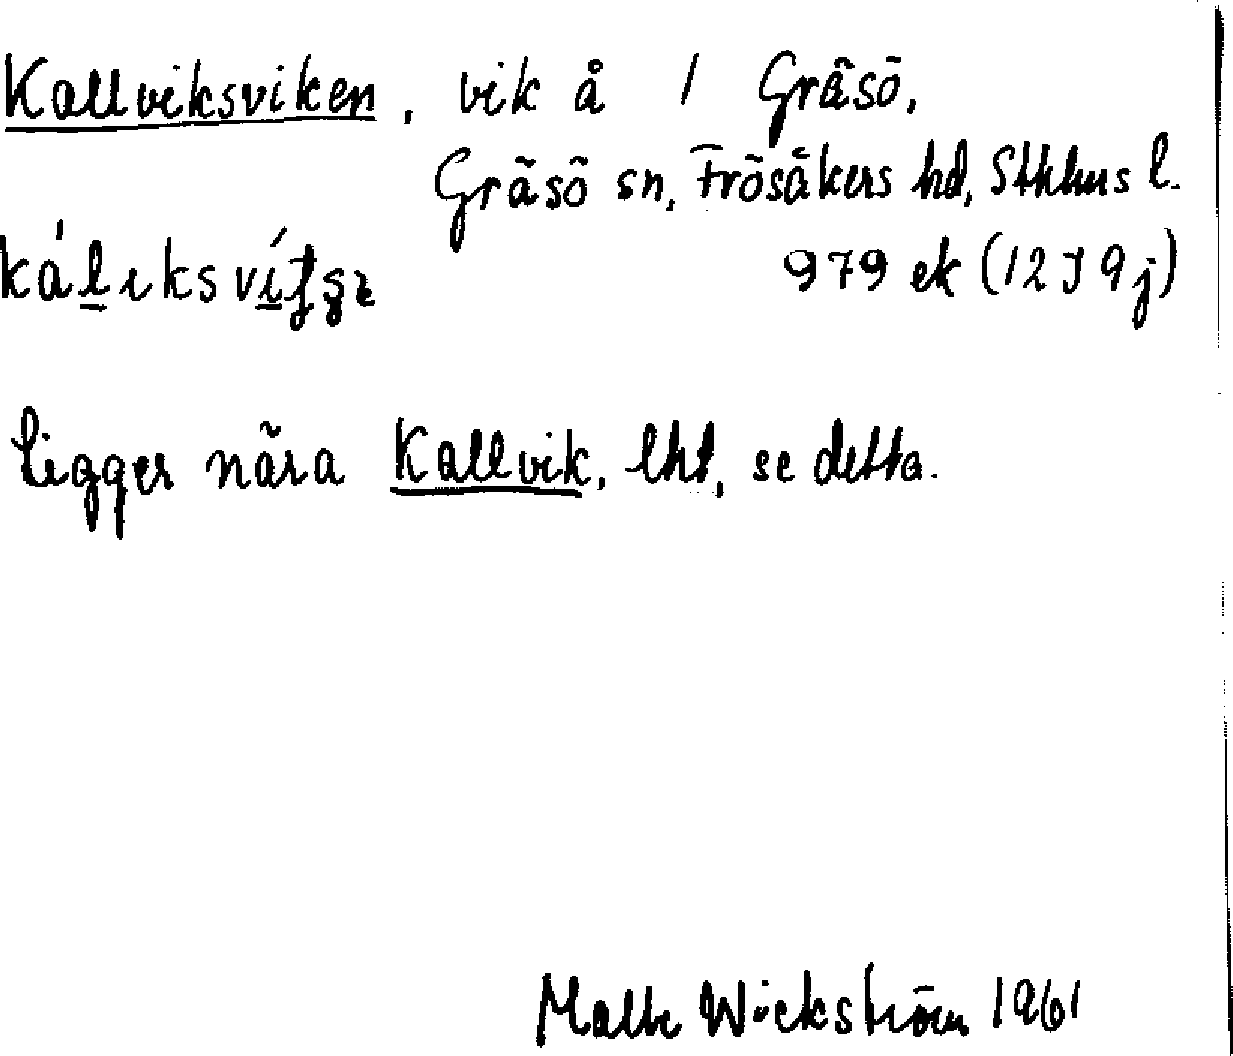 Kallviksviken, vik å 1 Gräsö,
Gräsö sn, Frösåkers hd, Sthlms l.
979 ek (12I9j)
Ligger nära Kallvik, lht, se detta.
Wickström 1961